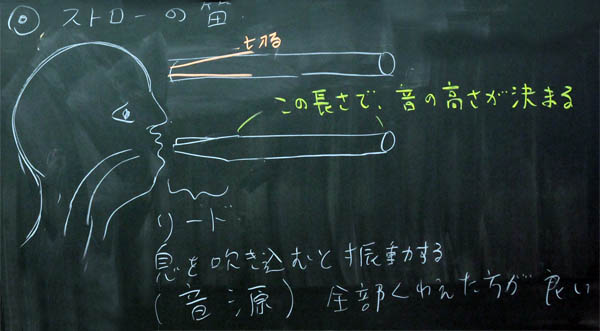 ◎ ストローの笛
切る
この長さで、音の高さが決まる
リード
息を吹き込むと振動する
(音源) 全部くわえた方が良い